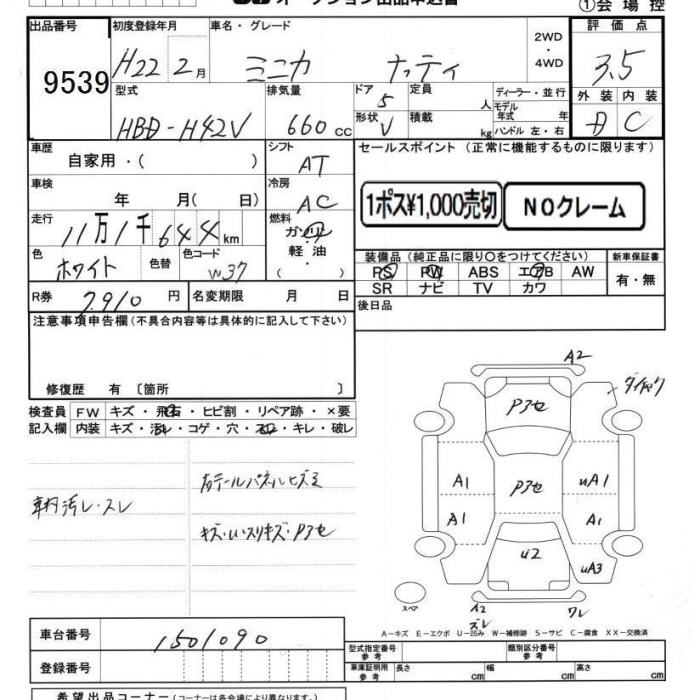 オークション出品申込書
①会場控
出品番号
9539
初度登録年月
H22 2月
車名・グレード
ミニカ ナッティ
2WD
・
4WD
評価点
3.5
外装 内装
D C
型式
HBD-H42V
排気量
660cc
ドア
5
形状
V
定員
人
積載
kg
ディーラー・並行
モデル年式 年
ハンドル 左・右
車歴
自家用・( )
シフト
AT
セールスポイント (正常に機能するものに限ります)
1ポス¥1,000売切
NOクレーム
車検
年 月( 日)
冷房
AC
走行
11万1千644km
燃料
ガソリン
・
軽油
( )
色
ホワイト
色替
色コード
W37
装備品 (純正品に限り○をつけてください)
PS PW ABS エアB AW
SR ナビ TV カワ
新車保証書
有・無
R券
7,910円
名変期限 月 日
後日品
注意事項申告欄 (不具合内容等は具体的に記入して下さい)
修復歴 有 〔箇所 〕
検査員 FW キズ・飛石・ヒビ割・リペア跡・×要
記入欄 内装 キズ・汚レ・コゲ・穴・スレ・キレ・破レ
車内汚レ・スレ
右テールパネルヒズミ
キズ・U・スリキズ・アセ
A2
ダイヤク
アセ
A1
アセ
uA1
A1
A1
u2
uA3
スペア
イ2
ズレ
ワレ
A-キズ E-エクボ U-凹み W-補修跡 S-サビ C-腐食 XX-交換済
車台番号
1501090
登録番号
型式指定番号
参考
類別区分番号
参考
車庫証明用
参考
長さ cm
幅 cm
高さ cm
希望出品コーナー (コーナーは各会場により異なります。)